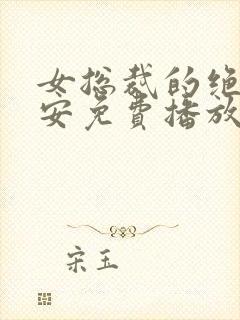 女总裁的绝
安免費播放
宋玉